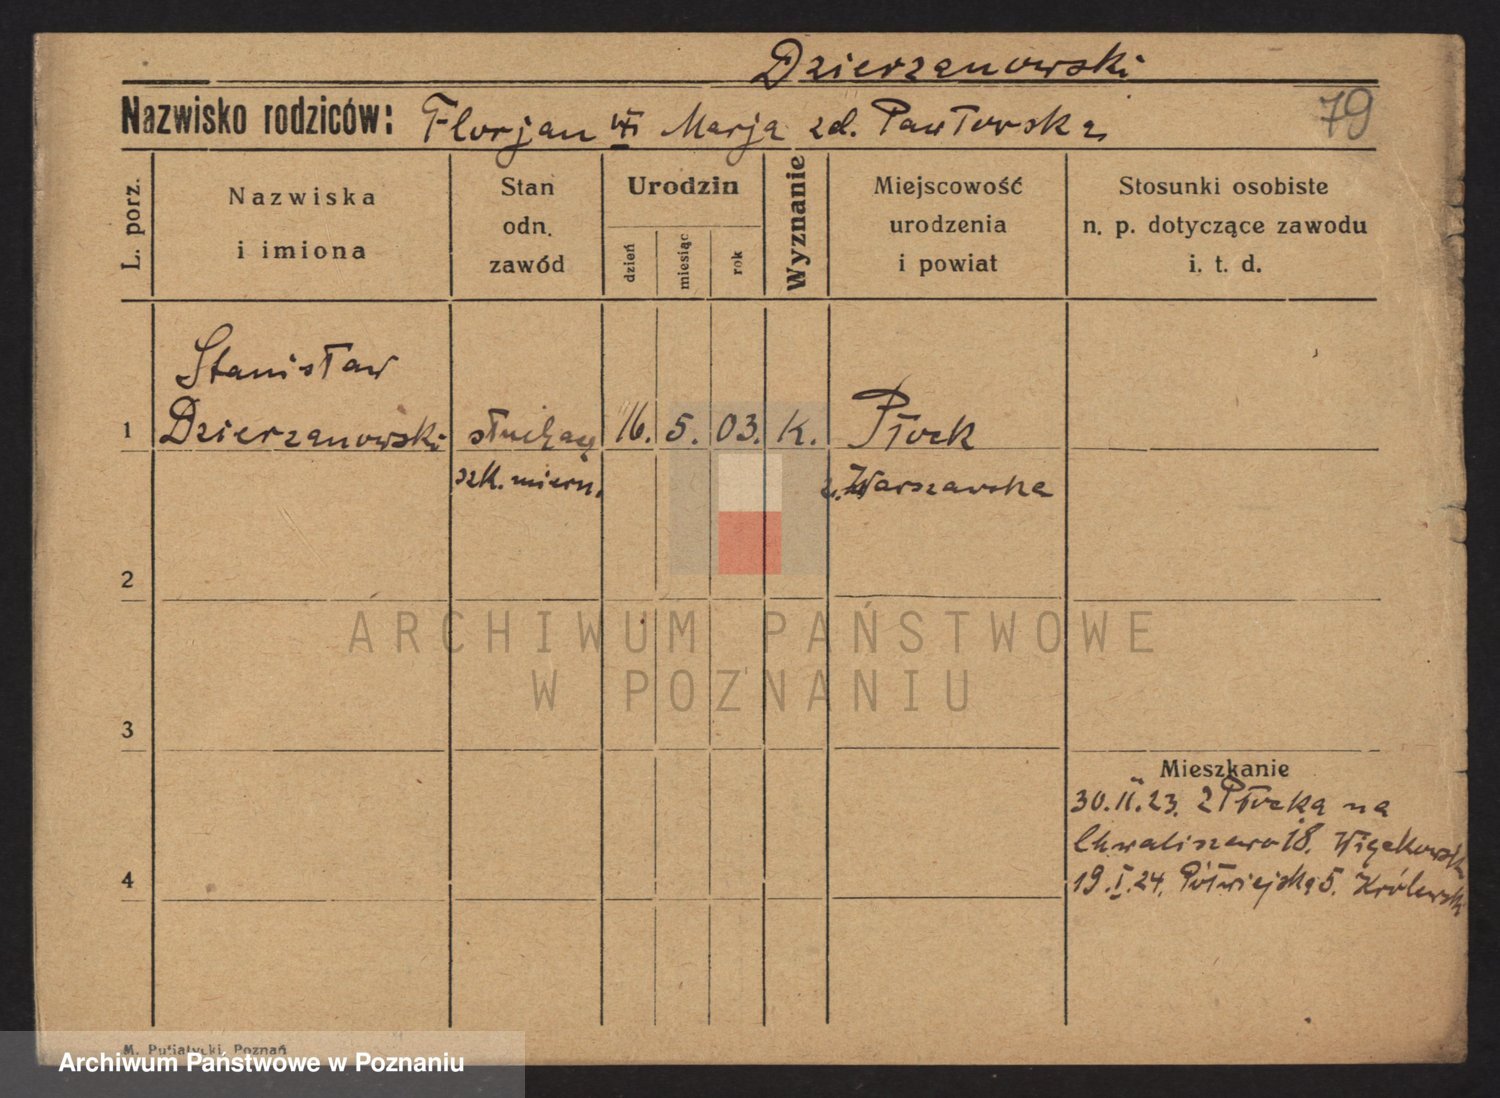 Dzierzanowski
Nazwisko rodziców: Florjan Marja zd. Pawłowska
79
L. porz.
Nazwiska
i imiona
Stan
odn.
zawód
Urodzin
dzień
miesiąc
rok
Wyznanie
Miejscowość
urodzenia
i powiat
Stosunki osobiste
n. p. dotyczące zawodu
i. t. d.
Stanisław
1 Dzierzanowski słuchacz 16. 5. 03. K. Płock
szk. miern. z. Warszawska
2
3
Mieszkanie
30.II.23. z Płocka na
Chwaliszewo 18.
4 19.I.24. Półwiejska 5. Królewski
ARCHIWUM PAŃSTWOWE
W POZNANIU
M. Putiatycki, Poznań
Archiwum Państwowe w Poznaniu